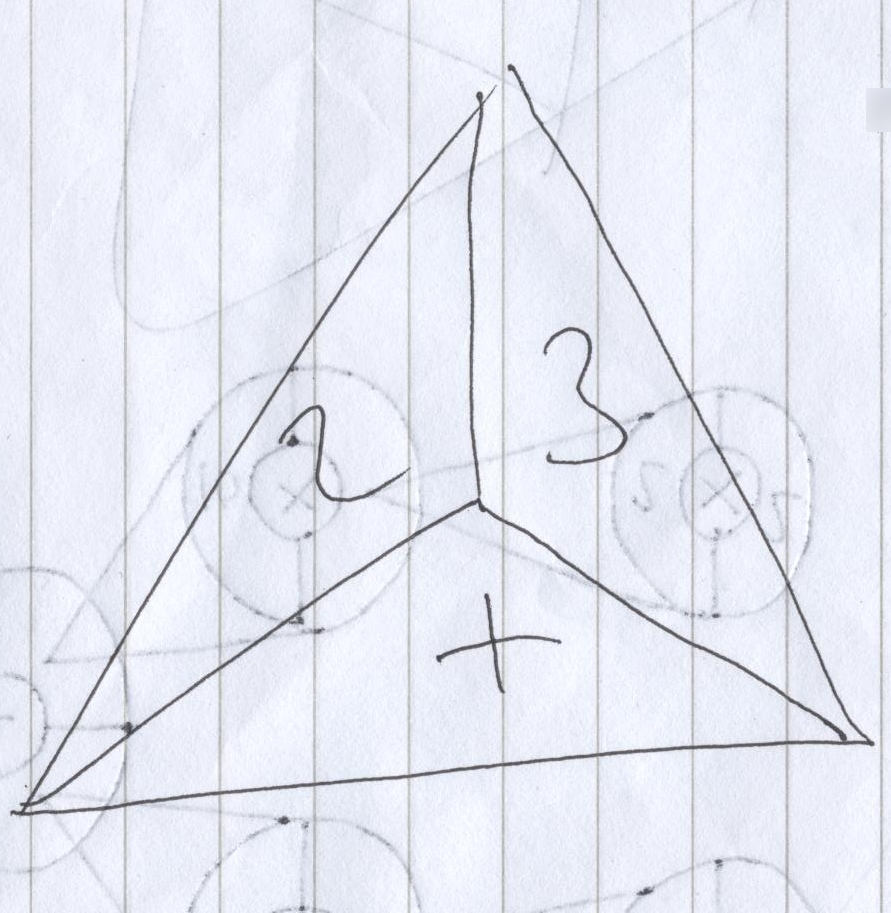 2 3
+